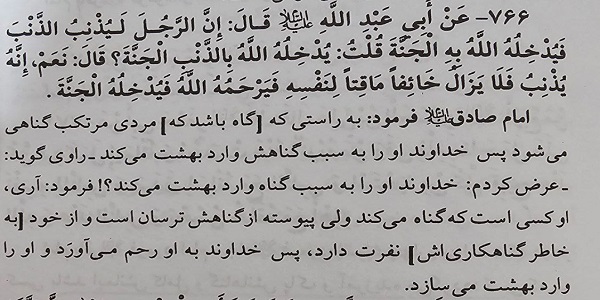 ۷۶۶- عَنْ أَبِي عَبْدِ اللَّهِ ؑ قَالَ: إِنَّ الرَّجُلَ لَيُذْنِبُ الذَّنْبَ
فَيُدْخِلُهُ اللَّهُ بِهِ الْجَنَّةَ قُلْتُ: يُدْخِلُهُ اللَّهُ بِالذَّنْبِ الْجَنَّةَ؟ قَالَ: نَعَمْ، إِنَّهُ
يُذْنِبُ فَلَا يَزَالُ خَائِفاً مَاقِتاً لِنَفْسِهِ فَيَرْحَمُهُ اللَّهُ فَيُدْخِلُهُ الْجَنَّةَ .
امام صادق ؑ فرمود: به راستی که [گاه باشد که] مردی مرتکب گناهی
می‌شود پس خداوند او را به سبب گناهش وارد بهشت می‌کند ـ راوی گوید:
ـ عرض کردم: خداوند او را به سبب گناه وارد بهشت می‌کند؟! فرمود: آری،
او کسی است که گناه می‌کند ولی پیوسته از گناهش ترسان است و از خود [به
خاطر گناهکاری‌اش] نفرت دارد، پس خداوند به او رحم می‌آورَد و او را
وارد بهشت می‌سازد.